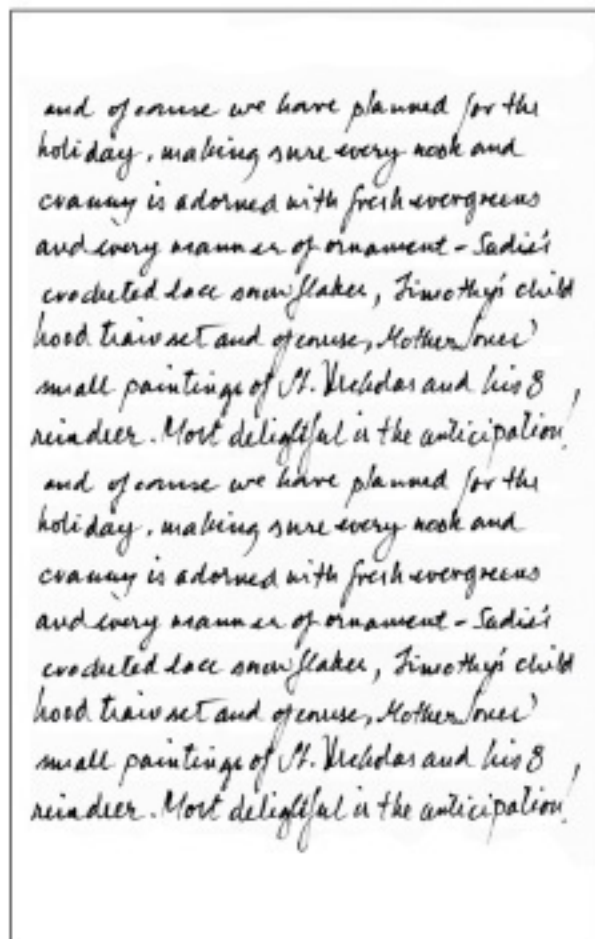 and of course we have planned for the
holiday, making sure every nook and
cranny is adorned with fresh evergreens
and every manner of ornament - Sadie's
crocheted lace snowflakes, Timothy's child
hood train set and of course, Mother
small paintings of St. Nicholas and his 8
reindeer. Most delightful is the anticipation!
and of course we have planned for the
holiday, making sure every nook and
cranny is adorned with fresh evergreens
and every manner of ornament - Sadie's
crocheted lace snowflakes, Timothy's child
hood train set and of course, Mother
small paintings of St. Nicholas and his 8
reindeer. Most delightful is the anticipation!